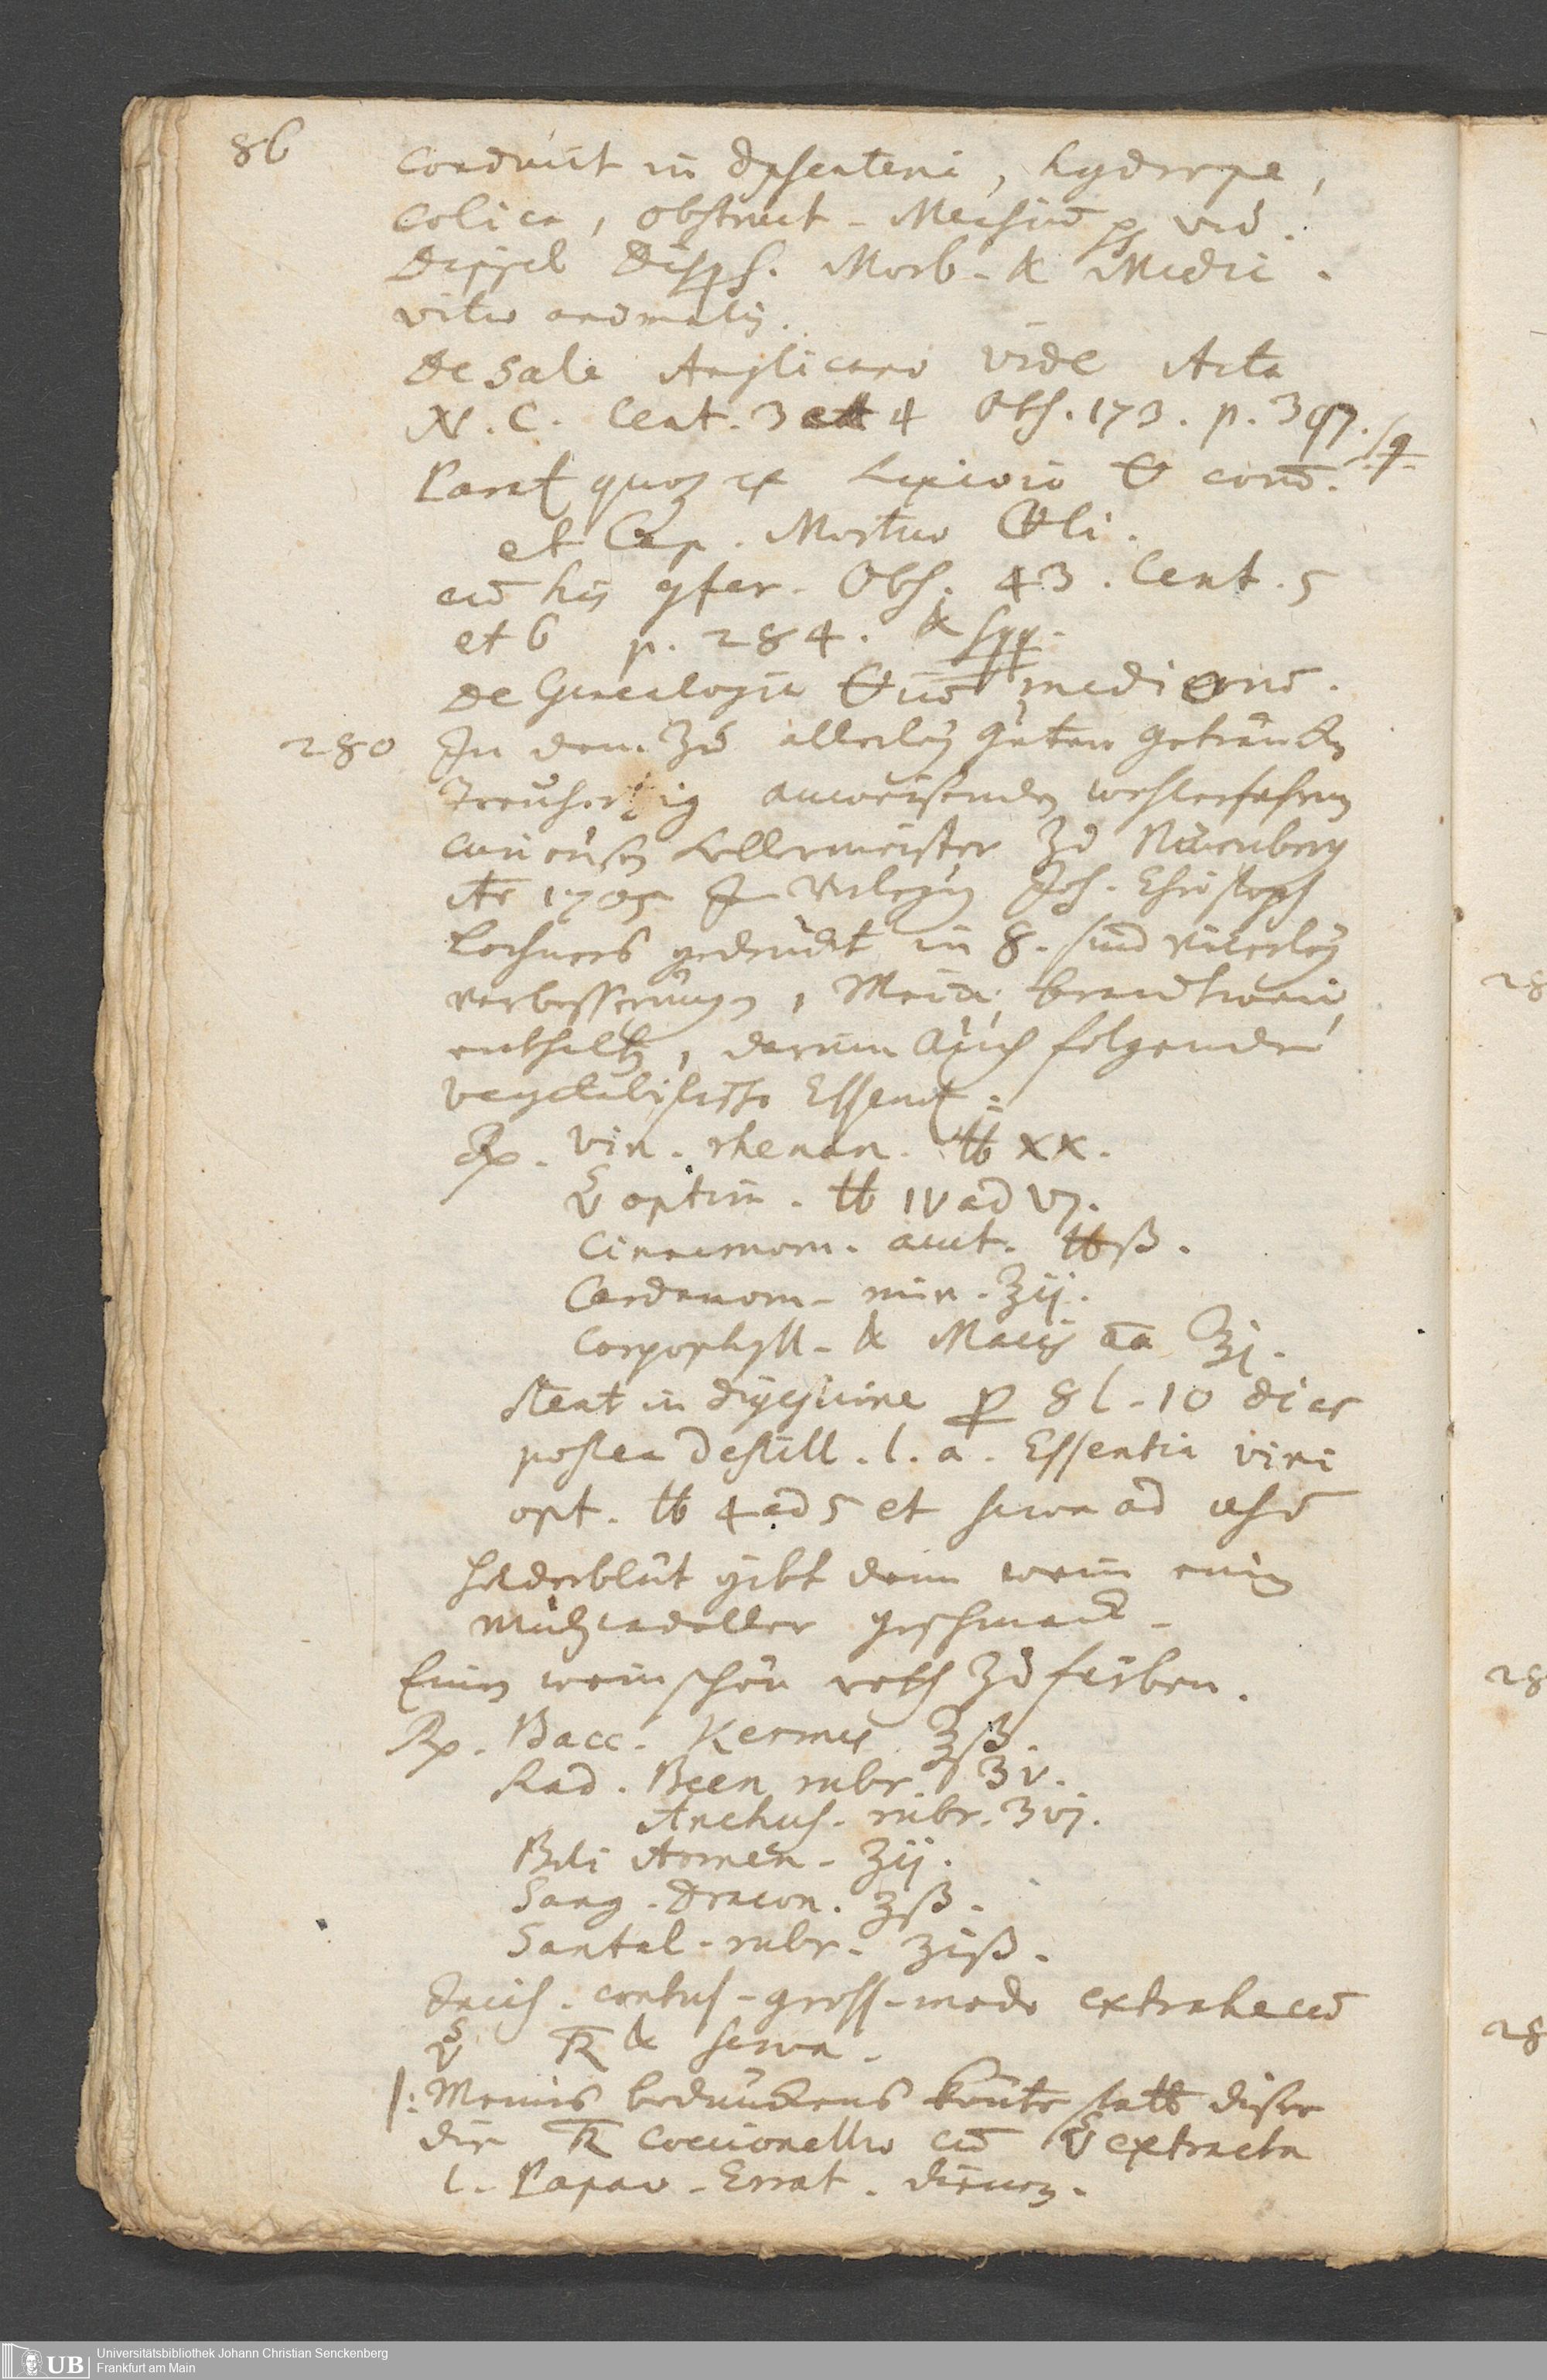 86
conducit in dysenteria, hydrope,
Colica, obstruct. Mensiū vid.
Dippel Disp. Morb. & Medic.
vitæ animalis.
De Sale Anglicano vide Acta
N. C. Cent. 3 et 4 Obs. 173. p. 397. sq
Parat quoq ex Lixivio con̄.
et Cap. Mortuo Θli.
cū his gfer. Obs. 43. Cent. 5
et 6 p. 284. & sqq.
de Genealogia mediorū.
280 In dem zu allerley guten geträncken
treuhertzig anweisenden wohlerfahrnen
curieusen Kellermeister zu Nürenberg
Ao 1705 In Verlegung Joh. Christoph
Lochners gedruckt in 8. sind vielerley
verbesserungen, Wein, brandtwein
enthalten, darinn auch folgende
vegetabilische Essent:
Rp. vin. rhenan. ℔ xx.
optim. ℔ IV ad VI.
Cinnamom. acut. ℔ß.
Cardamom. min. ʒij.
Caryophyll. & Macis āā ʒj.
stent in digestione p 8 l. 10 dies
postea destill. l. a. Essentia vini
opt. ℔ 4 ad 5 et serva ad usū
Holderblüt gibt dem wein einen
Muscadeller geschmack.
Einen wein schön roth zu färben.
Rp. Bacc. Kermes ʒß.
Rad. Been rubr. ʒv.
Anchus. rubr. ʒvj.
Boli Armen. ʒij.
Sang. Dracon. ʒß.
Santal. rubr. ʒiß.
Incis. contus. gross. modo extrahe cū
& serva.
|: Meines bedunckens könte statt dieser
die coccionello cū extracta
l. Papav. Errat. dienen.
28
28
28
UB Universitätsbibliothek Johann Christian Senckenberg
Frankfurt am Main